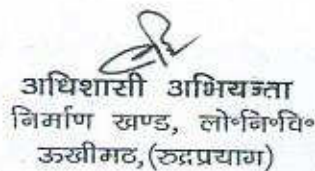 अधिशासी अभियन्ता
निर्माण खण्ड, लो०नि०वि०
ऊखीमठ,(रुद्रप्रयाग)